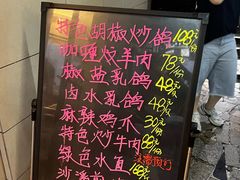 特色胡椒炒鸽 108元/份
咖喱炆羊肉 78元/份
椒盐乳鸽 48元/只
卤水乳鸽 48元/只
麻辣鸡爪 30元/份
特色炒牛肉 88元/份
绿色水直
沙潘煎